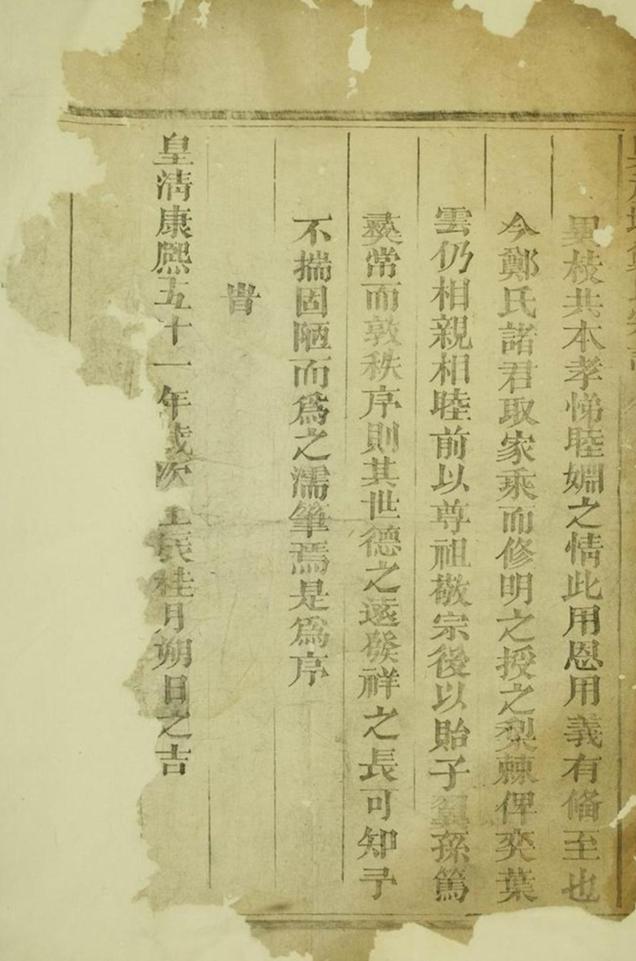 異枝共本孝悌睦婣之情此用恩用義有俻至也
今鄭氏諸君取家乘而修明之授之梨棘俾奕葉
雲仍相親相睦前以尊祖敬宗後以貽子翼孫篤
彞常而敦秩序則其世德之遠發祥之長可知予
不揣固陋而爲之濡筆焉是爲序
旹
皇清康熈五十一年歲次壬辰桂月朔日之吉